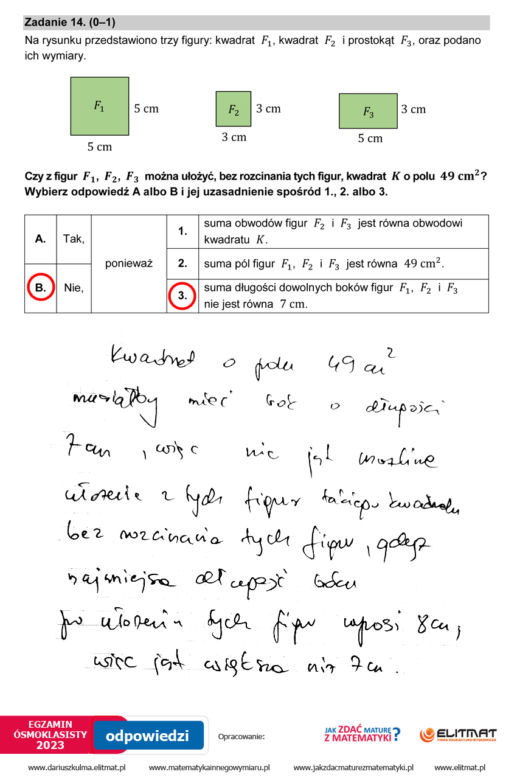 Zadanie 14. (0–1)
Na rysunku przedstawiono trzy figury: kwadrat F₁, kwadrat F₂ i prostokąt F₃, oraz podano
ich wymiary.
F₁ 5 cm F₂ 3 cm F₃ 3 cm
5 cm 3 cm 5 cm
Czy z figur F₁, F₂, F₃ można ułożyć, bez rozcinania tych figur, kwadrat K o polu 49 cm²?
Wybierz odpowiedź A albo B i jej uzasadnienie spośród 1., 2. albo 3.
A. Tak,
B. Nie,
ponieważ
1. suma obwodów figur F₂ i F₃ jest równa obwodowi
kwadratu K.
2. suma pól figur F₁, F₂ i F₃ jest równa 49 cm².
3. suma długości dowolnych boków figur F₁, F₂ i F₃
nie jest równa 7 cm.
Kwadrat o polu 49 cm²
musiałby mieć bok o długości
7 cm, więc nie jest możliwe
ułożenie z tych figur takiego kwadratu
bez rozcinania tych figur, gdyż
najmniejsza długość boku
po ułożeniu tych figur wynosi 8 cm,
więc jest większa niż 7 cm.
EGZAMIN
ÓSMOKLASISTY
2023
odpowiedzi
Opracowanie:
JAK ZDAĆ MATURĘ
Z MATEMATYKI?
ELITMAT
www.dariuszkulma.elitmat.pl www.matematykainnegowymiaru.pl www.jakzdacmaturezmatematyki.pl www.elitmat.pl